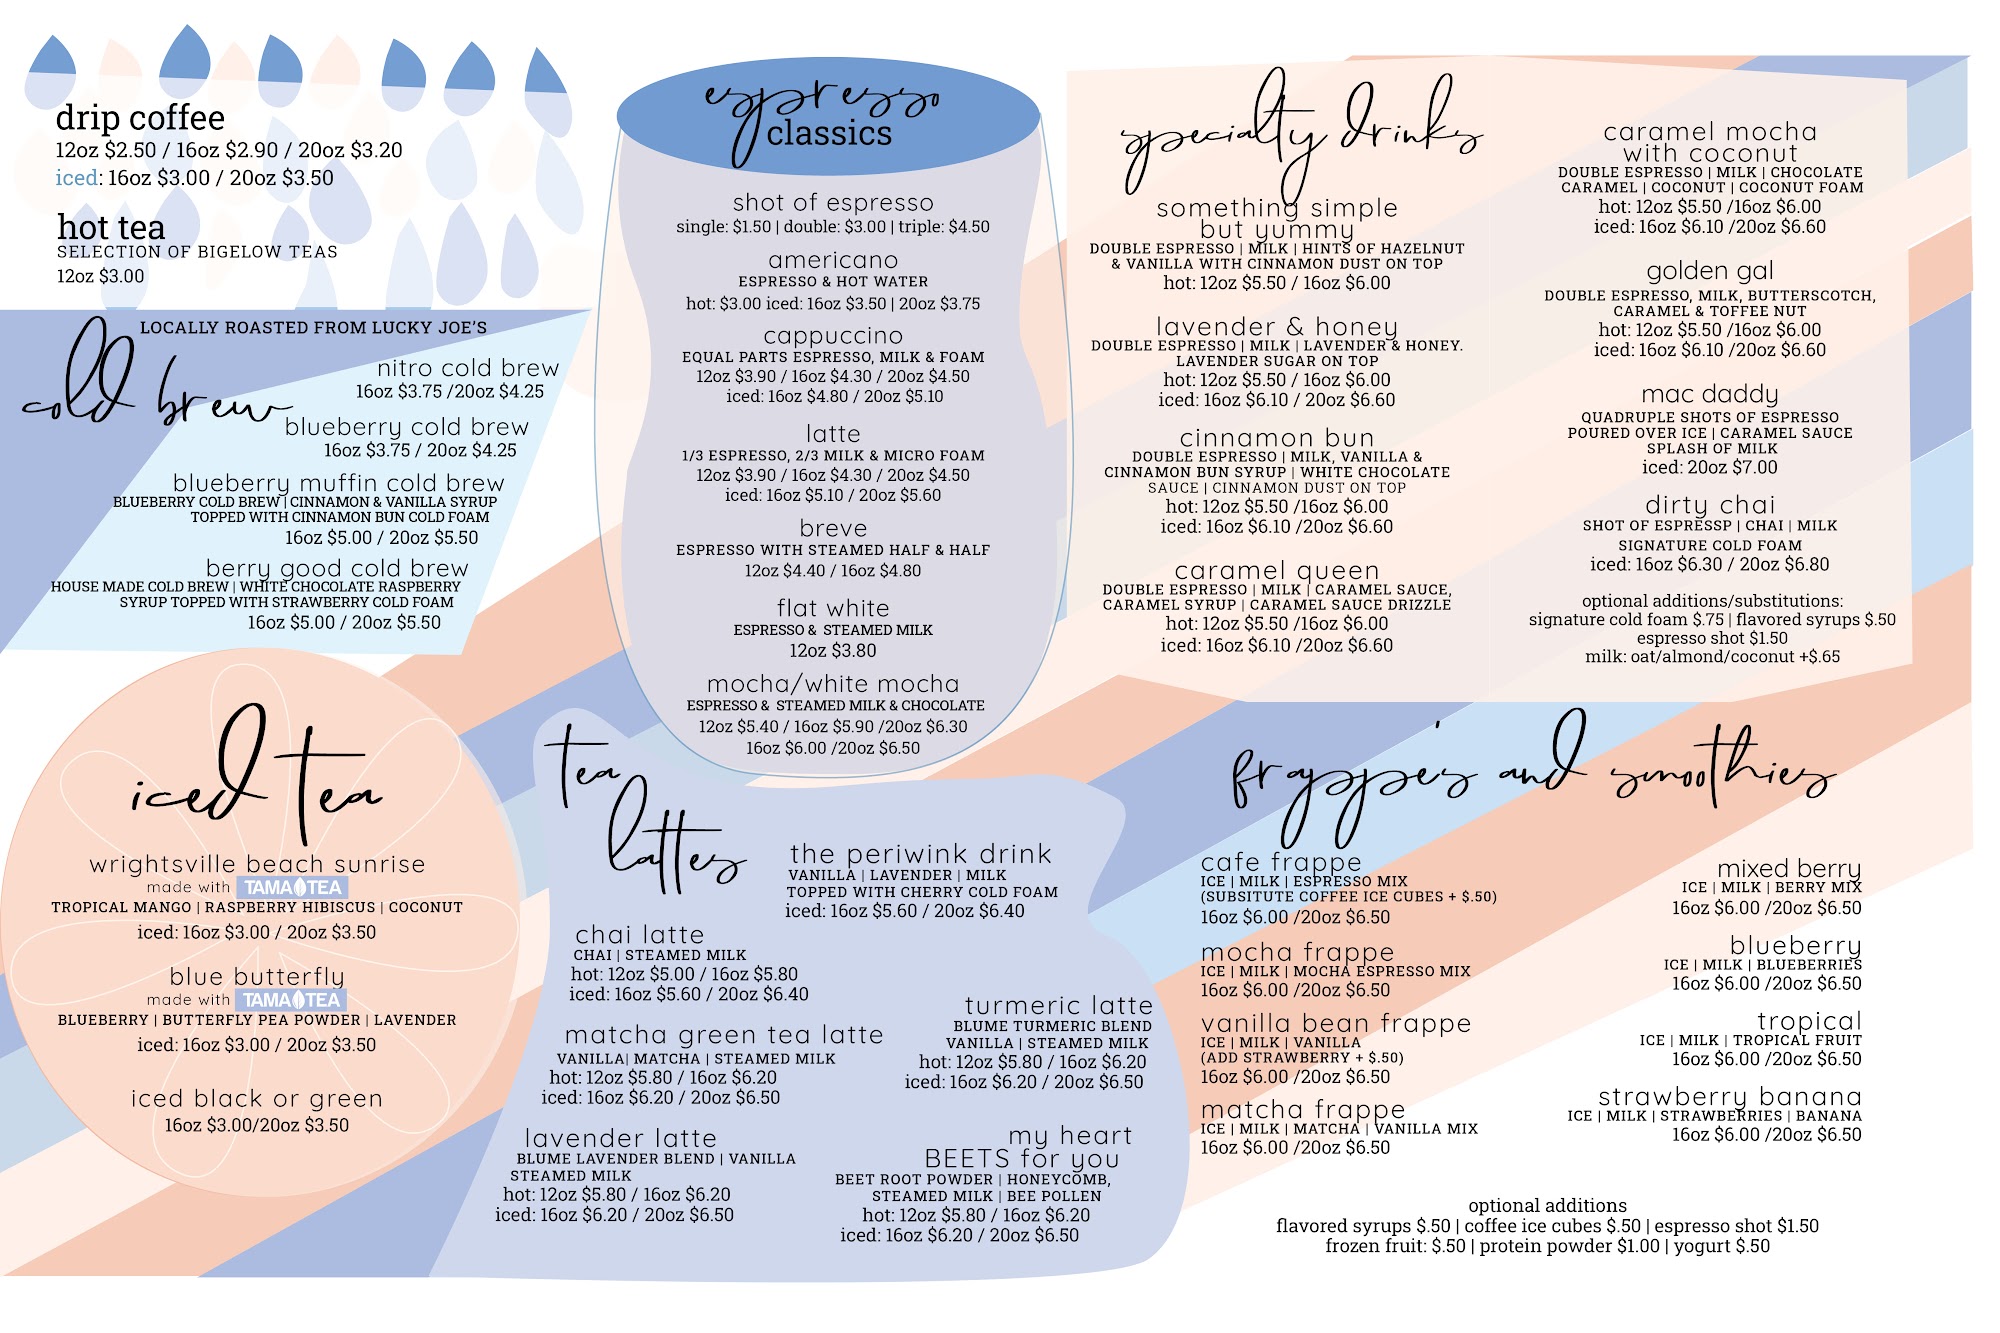 drip coffee
12oz $2.50 / 16oz $2.90 / 20oz $3.20
iced: 16oz $3.00 / 20oz $3.50
hot tea
SELECTION OF BIGELOW TEAS
12oz $3.00
LOCALLY ROASTED FROM LUCKY JOE'S
cold brew
nitro cold brew
16oz $3.75 /20oz $4.25
blueberry cold brew
16oz $3.75 / 20oz $4.25
blueberry muffin cold brew
BLUEBERRY COLD BREW | CINNAMON & VANILLA SYRUP
TOPPED WITH CINNAMON BUN COLD FOAM
16oz $5.00 / 20oz $5.50
berry good cold brew
HOUSE MADE COLD BREW | WHITE CHOCOLATE RASPBERRY
SYRUP TOPPED WITH STRAWBERRY COLD FOAM
16oz $5.00 / 20oz $5.50
iced tea
wrightsville beach sunrise
made with TAMA TEA
TROPICAL MANGO | RASPBERRY HIBISCUS | COCONUT
iced: 16oz $3.00 / 20oz $3.50
blue butterfly
made with TAMA TEA
BLUEBERRY | BUTTERFLY PEA POWDER | LAVENDER
iced: 16oz $3.00 / 20oz $3.50
iced black or green
16oz $3.00/20oz $3.50
espresso
classics
shot of espresso
single: $1.50 | double: $3.00 | triple: $4.50
americano
ESPRESSO & HOT WATER
hot: $3.00 iced: 16oz $3.50 | 20oz $3.75
cappuccino
EQUAL PARTS ESPRESSO, MILK & FOAM
12oz $3.90 / 16oz $4.30 / 20oz $4.50
iced: 16oz $4.80 / 20oz $5.10
latte
1/3 ESPRESSO, 2/3 MILK & MICRO FOAM
12oz $3.90 / 16oz $4.30 / 20oz $4.50
iced: 16oz $5.10 / 20oz $5.60
breve
ESPRESSO WITH STEAMED HALF & HALF
12oz $4.40 / 16oz $4.80
flat white
ESPRESSO & STEAMED MILK
12oz $3.80
mocha/white mocha
ESPRESSO & STEAMED MILK & CHOCOLATE
12oz $5.40 / 16oz $5.90 /20oz $6.30
16oz $6.00 /20oz $6.50
tea
lattes
the periwink drink
VANILLA | LAVENDER | MILK
TOPPED WITH CHERRY COLD FOAM
iced: 16oz $5.60 / 20oz $6.40
chai latte
CHAI | STEAMED MILK
hot: 12oz $5.00 / 16oz $5.80
iced: 16oz $5.60 / 20oz $6.40
matcha green tea latte
VANILLA| MATCHA | STEAMED MILK
hot: 12oz $5.80 / 16oz $6.20
iced: 16oz $6.20 / 20oz $6.50
lavender latte
BLUME LAVENDER BLEND | VANILLA
STEAMED MILK
hot: 12oz $5.80 / 16oz $6.20
iced: 16oz $6.20 / 20oz $6.50
turmeric latte
BLUME TURMERIC BLEND
VANILLA | STEAMED MILK
hot: 12oz $5.80 / 16oz $6.20
iced: 16oz $6.20 / 20oz $6.50
my heart
BEETS for you
BEET ROOT POWDER | HONEYCOMB,
STEAMED MILK | BEE POLLEN
hot: 12oz $5.80 / 16oz $6.20
iced: 16oz $6.20 / 20oz $6.50
specialty drinks
something simple
but yummy
DOUBLE ESPRESSO | MILK | HINTS OF HAZELNUT
& VANILLA WITH CINNAMON DUST ON TOP
hot: 12oz $5.50 / 16oz $6.00
lavender & honey
DOUBLE ESPRESSO | MILK | LAVENDER & HONEY.
LAVENDER SUGAR ON TOP
hot: 12oz $5.50 / 16oz $6.00
iced: 16oz $6.10 / 20oz $6.60
cinnamon bun
DOUBLE ESPRESSO | MILK, VANILLA &
CINNAMON BUN SYRUP | WHITE CHOCOLATE
SAUCE | CINNAMON DUST ON TOP
hot: 12oz $5.50 /16oz $6.00
iced: 16oz $6.10 /20oz $6.60
caramel queen
DOUBLE ESPRESSO | MILK | CARAMEL SAUCE,
CARAMEL SYRUP | CARAMEL SAUCE DRIZZLE
hot: 12oz $5.50 /16oz $6.00
iced: 16oz $6.10 /20oz $6.60
caramel mocha
with coconut
DOUBLE ESPRESSO | MILK | CHOCOLATE
CARAMEL | COCONUT | COCONUT FOAM
hot: 12oz $5.50 /16oz $6.00
iced: 16oz $6.10 /20oz $6.60
golden gal
DOUBLE ESPRESSO, MILK, BUTTERSCOTCH,
CARAMEL & TOFFEE NUT
hot: 12oz $5.50 /16oz $6.00
iced: 16oz $6.10 /20oz $6.60
mac daddy
QUADRUPLE SHOTS OF ESPRESSO
POURED OVER ICE | CARAMEL SAUCE
SPLASH OF MILK
iced: 20oz $7.00
dirty chai
SHOT OF ESPRESSP | CHAI | MILK
SIGNATURE COLD FOAM
iced: 16oz $6.30 / 20oz $6.80
optional additions/substitutions:
signature cold foam $.75 | flavored syrups $.50
espresso shot $1.50
milk: oat/almond/coconut +$.65
frappe's and smoothies
cafe frappe
ICE | MILK | ESPRESSO MIX
(SUBSITUTE COFFEE ICE CUBES + $.50)
16oz $6.00 /20oz $6.50
mocha frappe
ICE | MILK | MOCHA ESPRESSO MIX
16oz $6.00 /20oz $6.50
vanilla bean frappe
ICE | MILK | VANILLA
(ADD STRAWBERRY + $.50)
16oz $6.00 /20oz $6.50
matcha frappe
ICE | MILK | MATCHA | VANILLA MIX
16oz $6.00 /20oz $6.50
mixed berry
ICE | MILK | BERRY MIX
16oz $6.00 /20oz $6.50
blueberry
ICE | MILK | BLUEBERRIES
16oz $6.00 /20oz $6.50
tropical
ICE | MILK | TROPICAL FRUIT
16oz $6.00 /20oz $6.50
strawberry banana
ICE | MILK | STRAWBERRIES | BANANA
16oz $6.00 /20oz $6.50
optional additions
flavored syrups $.50 | coffee ice cubes $.50 | espresso shot $1.50
frozen fruit: $.50 | protein powder $1.00 | yogurt $.50